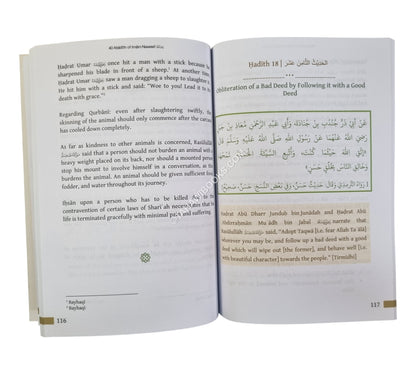 40 Aḥādīth of Imām Nawawī
Ḥaḍrat Umar once hit a man with a stick because he
sharpened his blade in front of a sheep.⁵ At another time
Ḥaḍrat Umar saw a man dragging a sheep to slaughter
He hit him with a stick and said: "Woe to you! Lead it to the
death with grace."⁶
Regarding Qurbānī: even after slaughtering swiftly, the
skinning of the animal should only commence after the carcass
has cooled down completely.
As far as kindness to other animals is concerned, Rasūlullāh
said that a person should not burden an animal with
heavy weight placed on its back, nor should a mounted person
stop his mount to involve himself in a conversation, as this
burdens the animal. An animal should be given sufficient
fodder, and water throughout its journey.
Iḥsān upon a person who has to be killed due to the
contravention of certain laws of Sharī'ah necessitates that his
life is terminated gracefully with minimal pain and suffering.
⁵ Bayhaqī
⁶ Bayhaqī
116
Ḥadīth 18 | الحَدِيثُ الثَّامِنَ عَشَرَ
Obliteration of a Bad Deed by Following it with a Good
Deed
عَنْ أَبِي ذَرٍّ جُنْدُبِ بْنِ جُنَادَةَ وَأَبِي عَبْدِ الرَّحْمَنِ مُعَاذِ بْنِ جَبَلٍ
رَضِيَ اللهُ عَنْهُمَا عَنْ رَسُولِ اللهِ صَلَّى اللهُ عَلَيْهِ وَسَلَّمَ قَالَ:
اتَّقِ اللهَ حَيْثُمَا كُنْتَ، وَأَتْبِعِ السَّيِّئَةَ الْحَسَنَةَ تَمْحُهَا،
وَخَالِقِ النَّاسَ بِخُلُقٍ حَسَنٍ.
[رَوَاهُ التِّرْمِذِيُّ وَقَالَ: حَدِيثٌ حَسَنٌ، وَفِي بَعْضِ النُّسَخِ: حَسَنٌ صَحِيحٌ]
Ḥaḍrat Abū Dharr Jundub bin Junādah and Ḥaḍrat Abū
Abderraḥmān Mu'ādh bin Jabal narrate that
Rasūlullāh said, "Adopt Taqwā [i.e. fear Allah Ta'ālā]
wherever you may be, and follow up a bad deed with a good
deed which will wipe out [the former], and behave well [i.e.
with beautiful character] towards the people." [Tirmidhī]
117